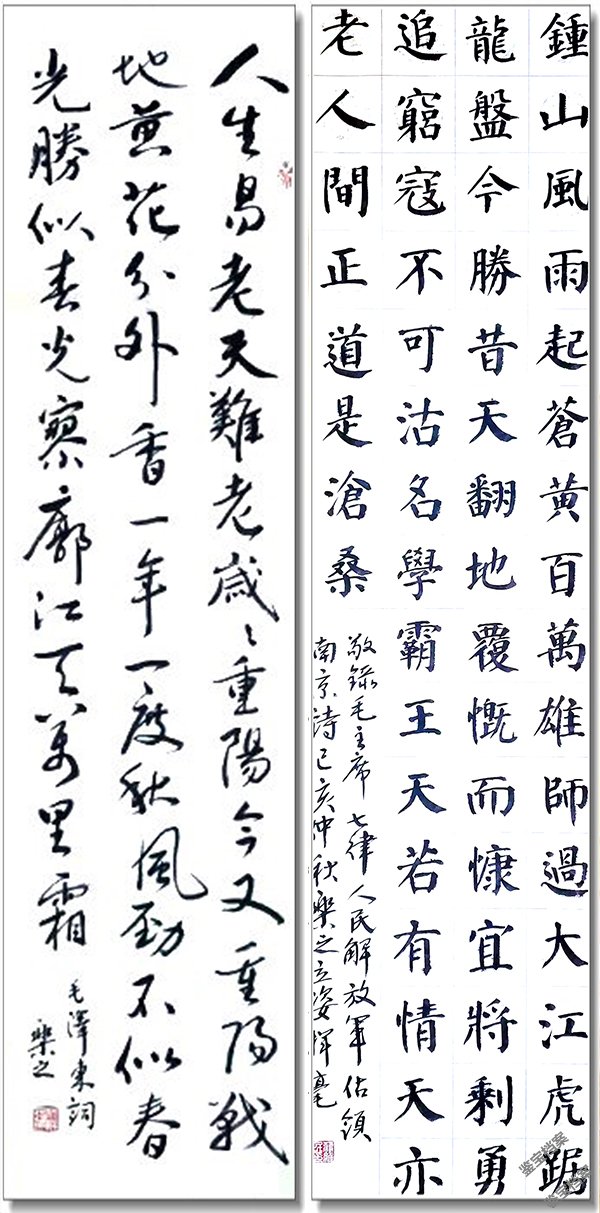 鍾山風雨起蒼黃百萬雄師過大江虎踞
龍盤今勝昔天翻地覆慨而慷宜將剩勇
追窮寇不可沽名學霸王天若有情天亦
老人間正道是滄桑
敬錄毛主席七律人民解放軍佔領
南京詩己亥仲秋樂之立姿揮毫
人生易老天難老歲々重陽今又重陽戰
地黃花分外香一年一度秋風勁不似春
光勝似春光寥廓江天萬里霜
毛澤東詞
樂之
鉴宝档案